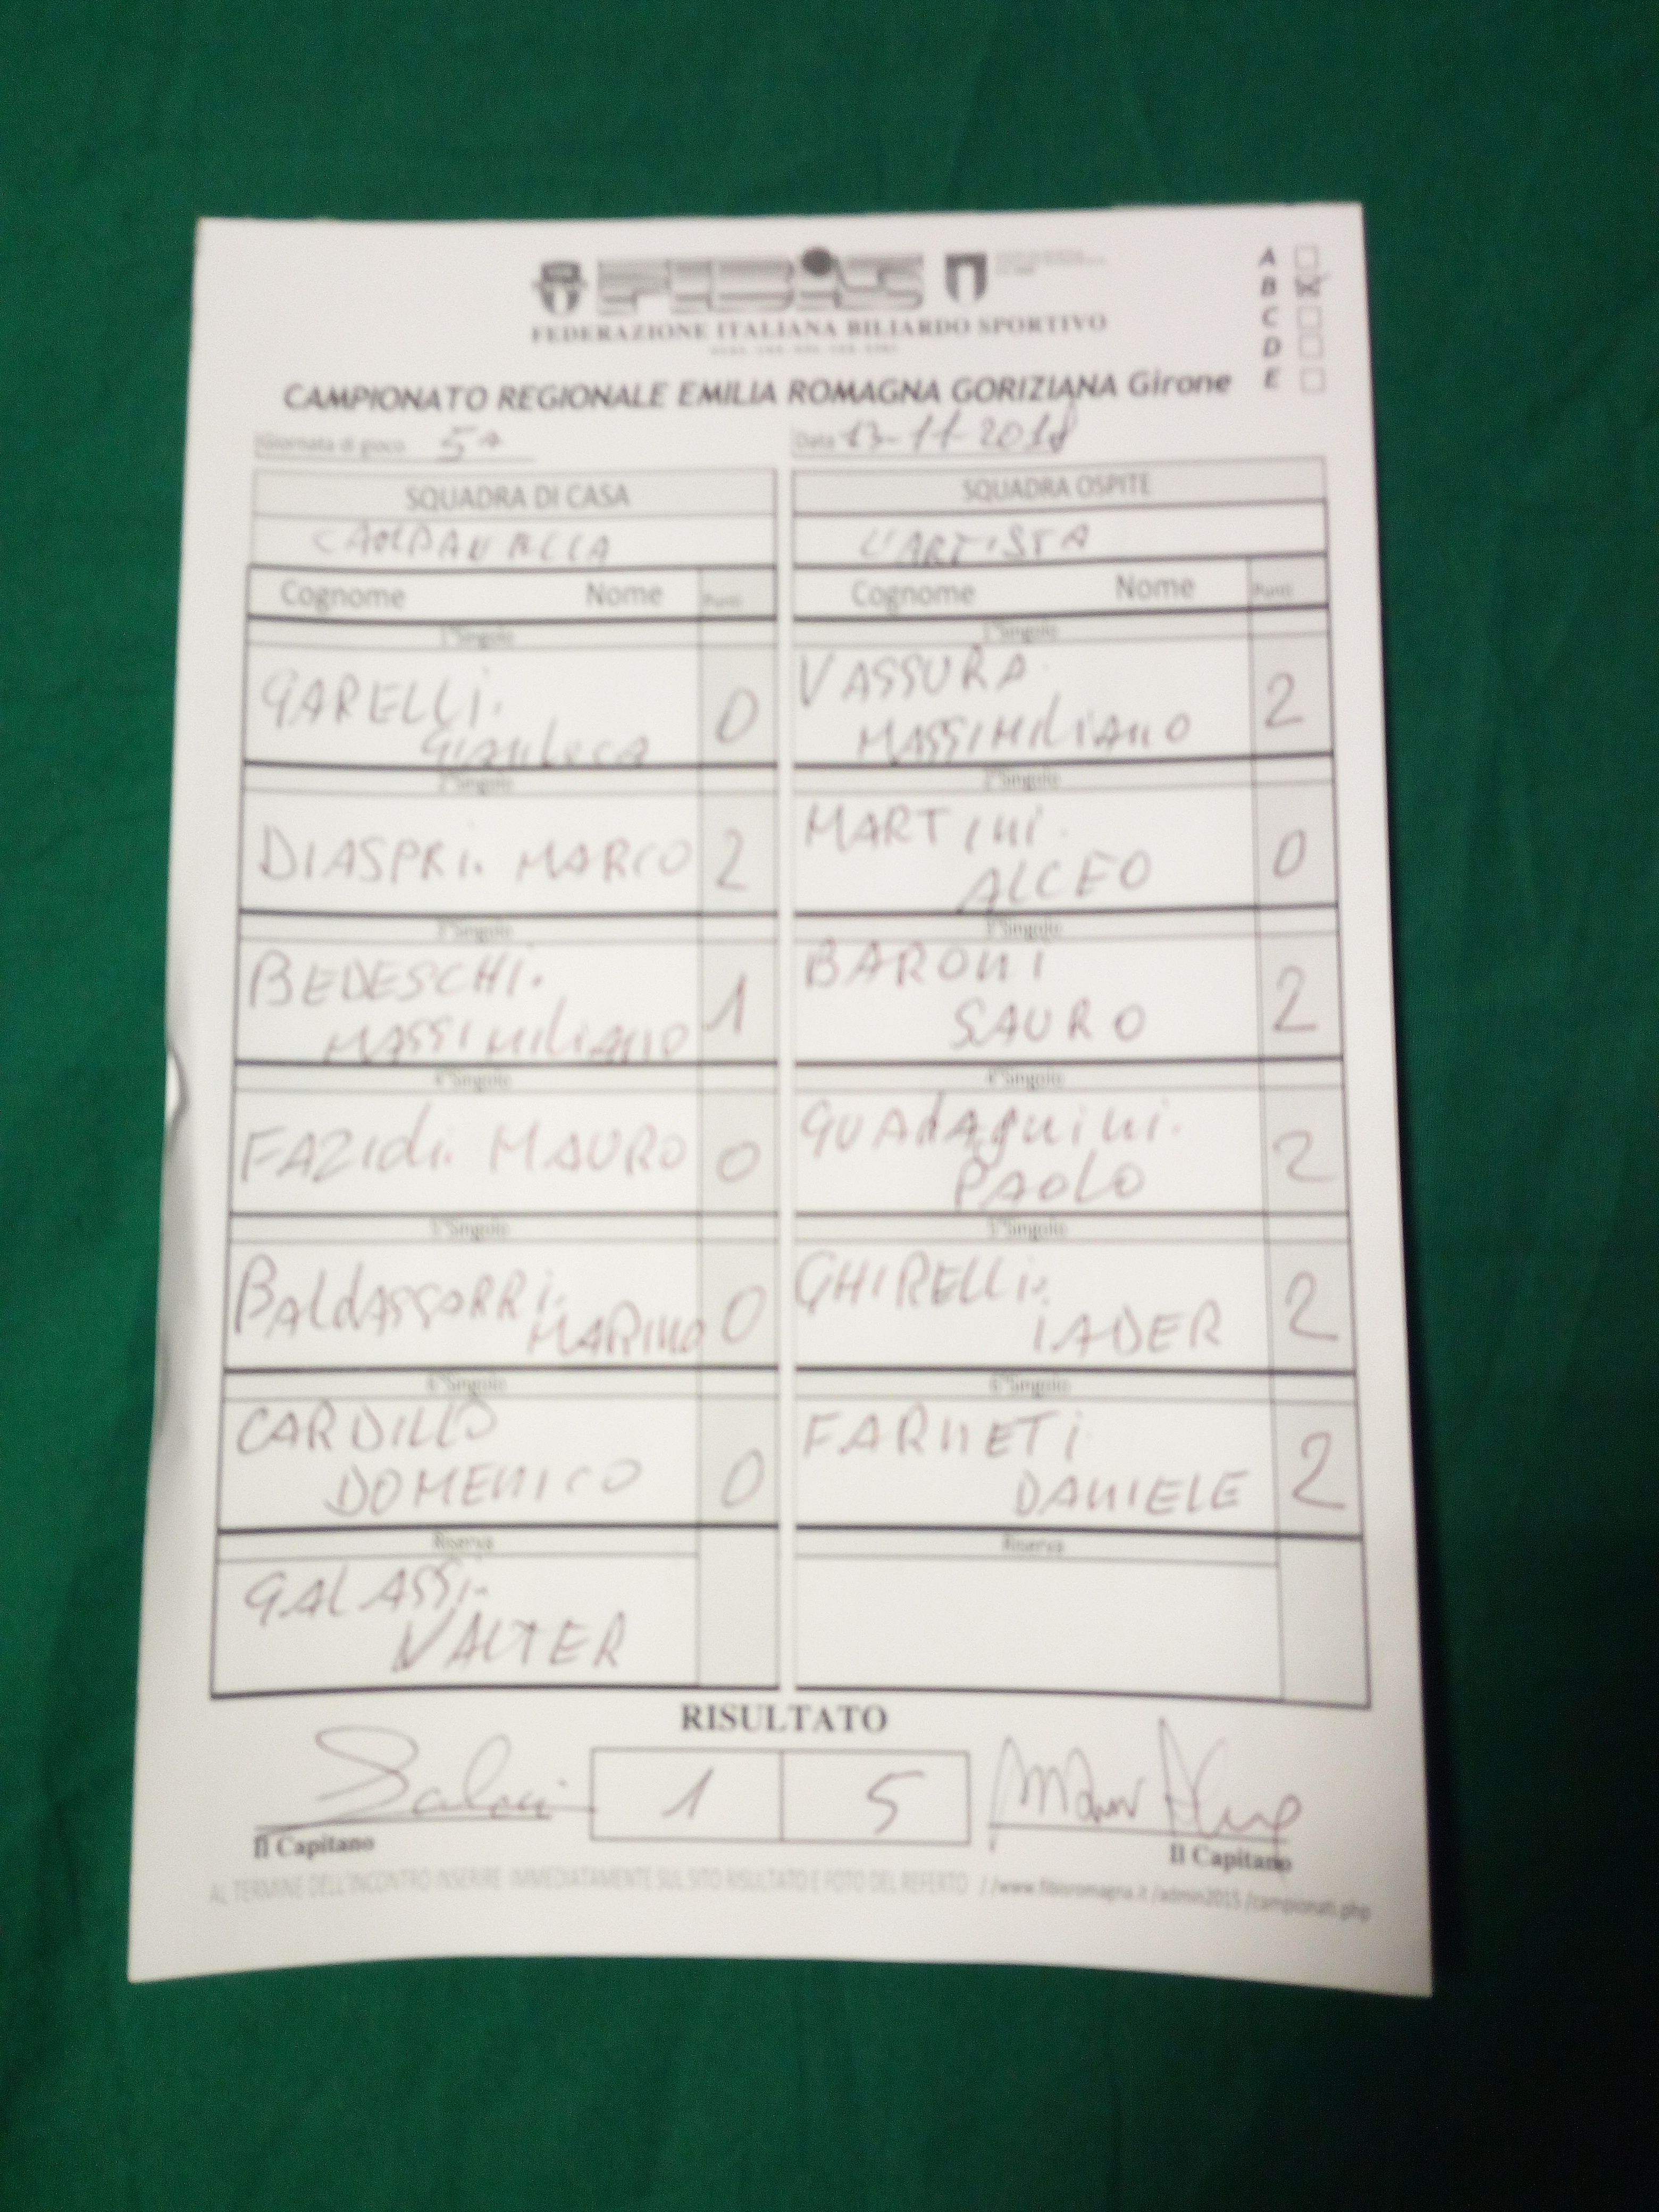 FIBIS
FEDERAZIONE ITALIANA BILIARDO SPORTIVO
A
B
C
D
E
CAMPIONATO REGIONALE EMILIA ROMAGNA GORIZIANA Girone
Giornata di gioco 5ª Data 13-11-2018
SQUADRA DI CASA SQUADRA OSPITE
L'ARTISTA
Cognome Nome Punti Cognome Nome Punti
1°Singolo 1°Singolo
GARELLI. VASSURA
GIANLUCA 0 MASSIMILIANO 2
2°Singolo 2°Singolo
MARTINI.
DIASPRI. MARCO 2 ALCEO 0
3°Singolo 3°Singolo
BEDESCHI. BARONI
MASSIMILIANO 1 SAURO 2
4°Singolo 4°Singolo
GUADAGNINI.
FAZIOLI. MAURO 0 PAOLO 2
5°Singolo 5°Singolo
BALDASSARRI. GHIRELLI.
MARINO 0 IADER 2
6°Singolo 6°Singolo
CARDILLO FARNETI
DOMENICO 0 DANIELE 2
Riserva Riserva
GALASSI.
VALTER
RISULTATO
1 5
Il Capitano Il Capitano
AL TERMINE DELL'INCONTRO INSERIRE IMMEDIATAMENTE SUL SITO RISULTATO E FOTO DEL REFERTO //www.fibisromagna.it/admin2015/campionati.php